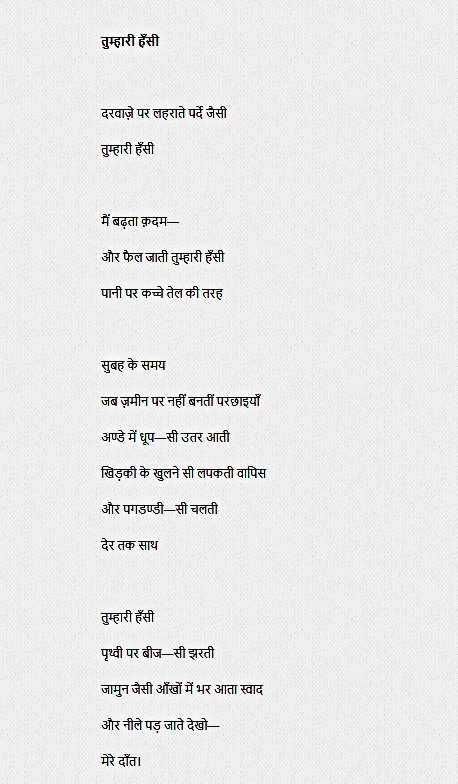 तुम्हारी हँसी
दरवाज़े पर लहराते पर्दे जैसी
तुम्हारी हँसी
मैं बढ़ता क़दम—
और फैल जाती तुम्हारी हँसी
पानी पर कच्चे तेल की तरह
सुबह के समय
जब ज़मीन पर नहीं बनतीं परछाइयाँ
अण्डे में धूप—सी उतर आती
खिड़की के खुलने सी लपकती वापिस
और पगडण्डी—सी चलती
देर तक साथ
तुम्हारी हँसी
पृथ्वी पर बीज—सी झरती
जामुन जैसी आँखों में भर आता स्वाद
और नीले पड़ जाते देखो—
मेरे दाँत।